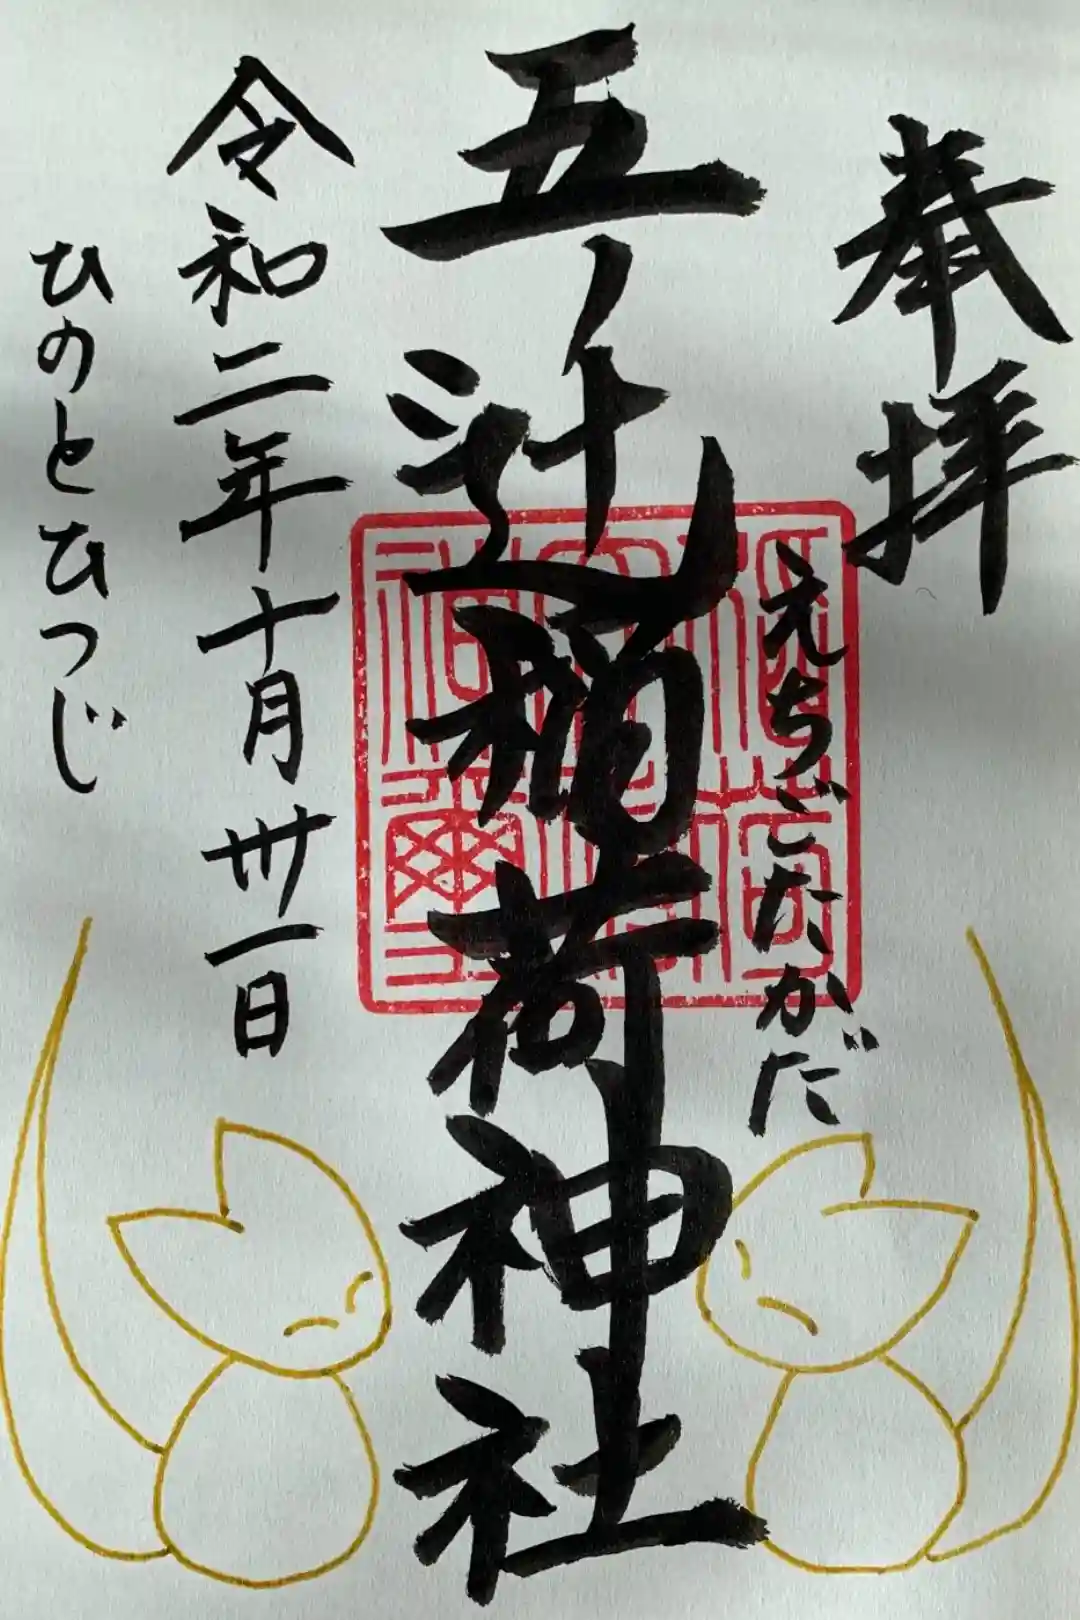 奉拝
えちごたかだ
五ノ辻稲荷神社
令和二年十月卅一日
ひのとひつじ